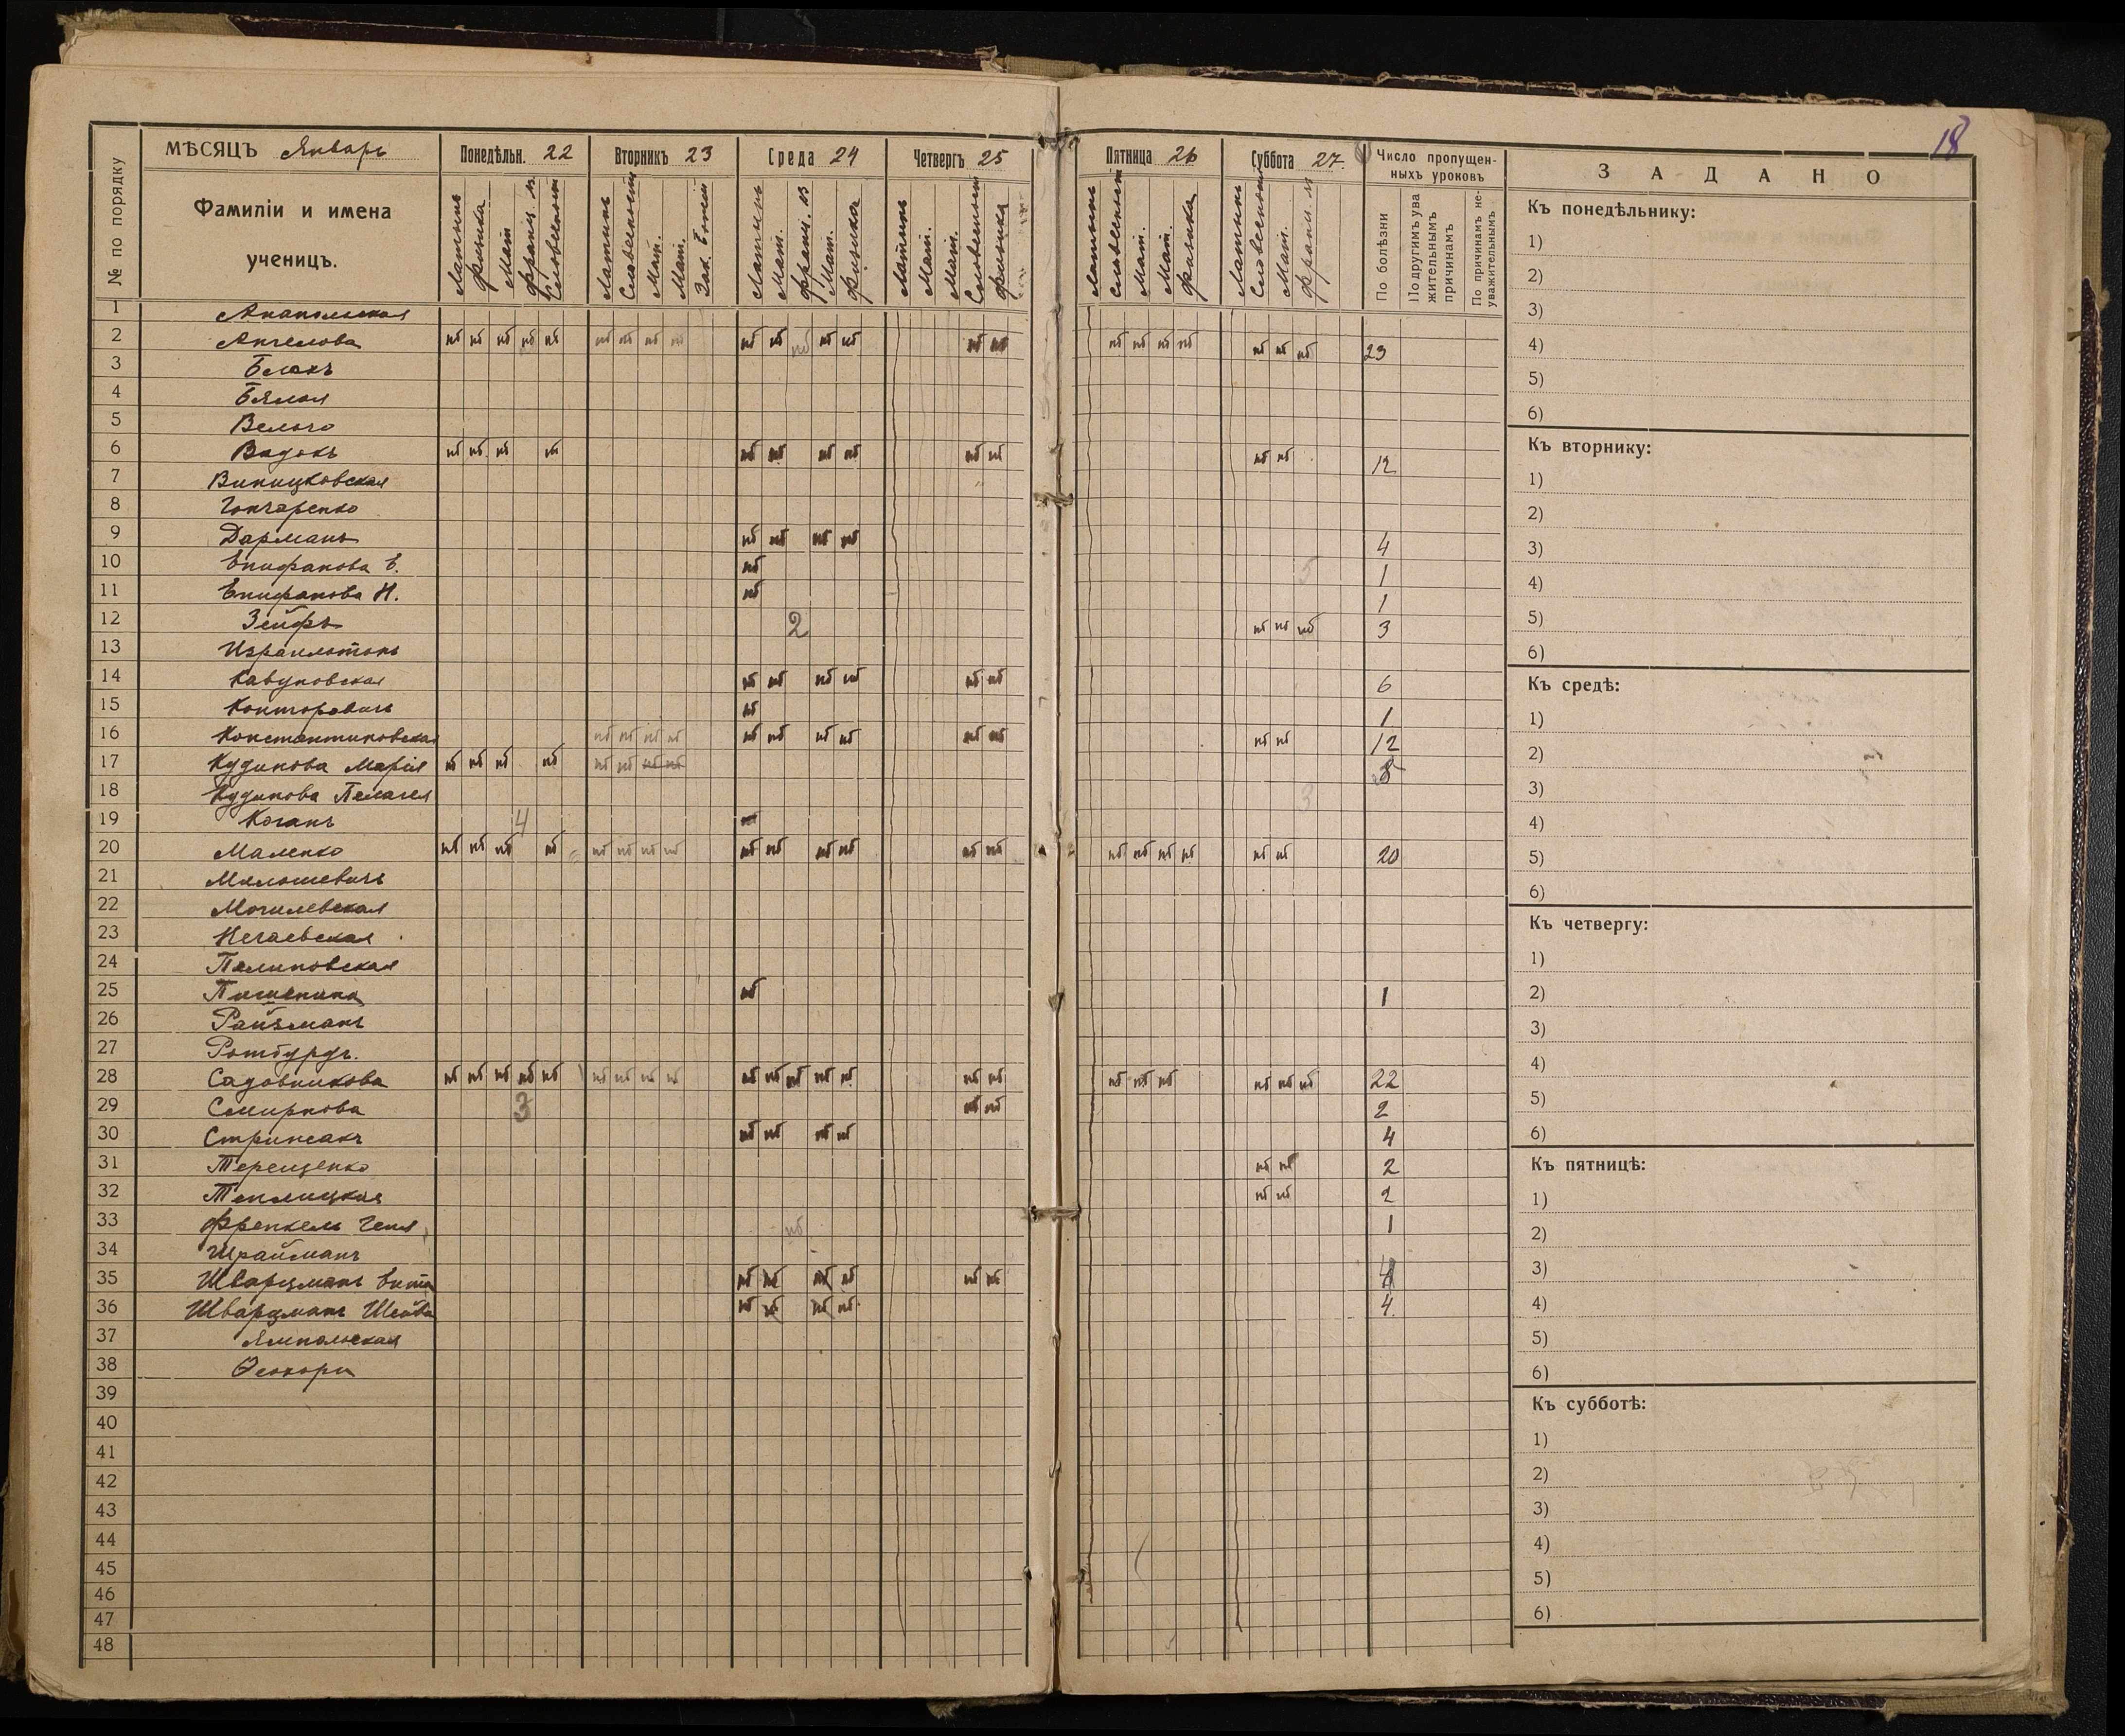 18
МѢСЯЦЪ Январь
№ по порядку
Фамиліи и имена
ученицъ.
Понедѣльн. 22
Вторникъ 23
Среда 24
Четвергъ 25
Пятница 26
Суббота 27
Число пропущен-
ныхъ уроковъ
По болѣзни
По другимъ ува
жительнымъ
причинамъ
По причинамъ не-
уважительнымъ
Латынь Физика Мат. Франц. Словесность
Латынь Словесность Мат. Мат. Зак. Божій
Латынь Мат. Франц. Мат. Физика
Латынь Мат. Мат. Словесность Физика
Латынь Словесность Мат. Мат. Физика
Латынь Словесность Мат. Франц.
1 Анапольская
2 Ангелова нб нб нб нб нб нб нб нб нб нб нб нб нб нб нб нб нб нб нб нб нб нб нб 23
3 Блакъ
4 Бялая
5
6 нб нб нб нб нб нб нб нб нб нб нб нб 12
7 Виницковская
8 Гончаренко
9 Дарманъ нб нб нб нб 4
10 Епифанова Е. нб 5 1
11 Епифанова Н. нб 1
12 Зейфъ 2 нб нб нб 3
13
14 Кавуновская нб нб нб нб нб нб 6
15 Конторовичъ нб 1
16 Константиновская нб нб нб нб нб нб нб нб нб нб нб нб 12
17 Кудинова Марія нб нб нб нб нб нб нб нб 8
18 Кудинова Пелагея 3
19 Коганъ 4
20 Маленко нб нб нб нб нб нб нб нб нб нб нб нб нб нб нб нб нб нб нб нб 20
21 Милошевичъ
22 Могилевская
23 Нечаевская
24 Палиновская
25 нб 1
26 Райзманъ
27 Ротбурдъ.
28 Садовникова нб нб нб нб нб нб нб нб нб нб нб нб нб нб нб нб нб нб нб нб нб нб 22
29 Смирнова 3 нб нб 2
30 нб нб нб нб 4
31 Терещенко нб нб 2
32 Теплицкая нб нб 2
33 Френкель Геня нб 1
34 Шрайманъ
35 Шварцманъ нб нб нб нб нб нб
36 Шварцманъ Шейва нб нб нб нб 4
37 Ямпольская
38
39
40
41
42
43
44
45
46
47
48
ЗАДАНО
Къ понедѣльнику:
1)
2)
3)
4)
5)
6)
Къ вторнику:
1)
2)
3)
4)
5)
6)
Къ средѣ:
1)
2)
3)
4)
5)
6)
Къ четвергу:
1)
2)
3)
4)
5)
6)
Къ пятницѣ:
1)
2)
3)
4)
5)
6)
Къ субботѣ:
1)
2)
3)
4)
5)
6)